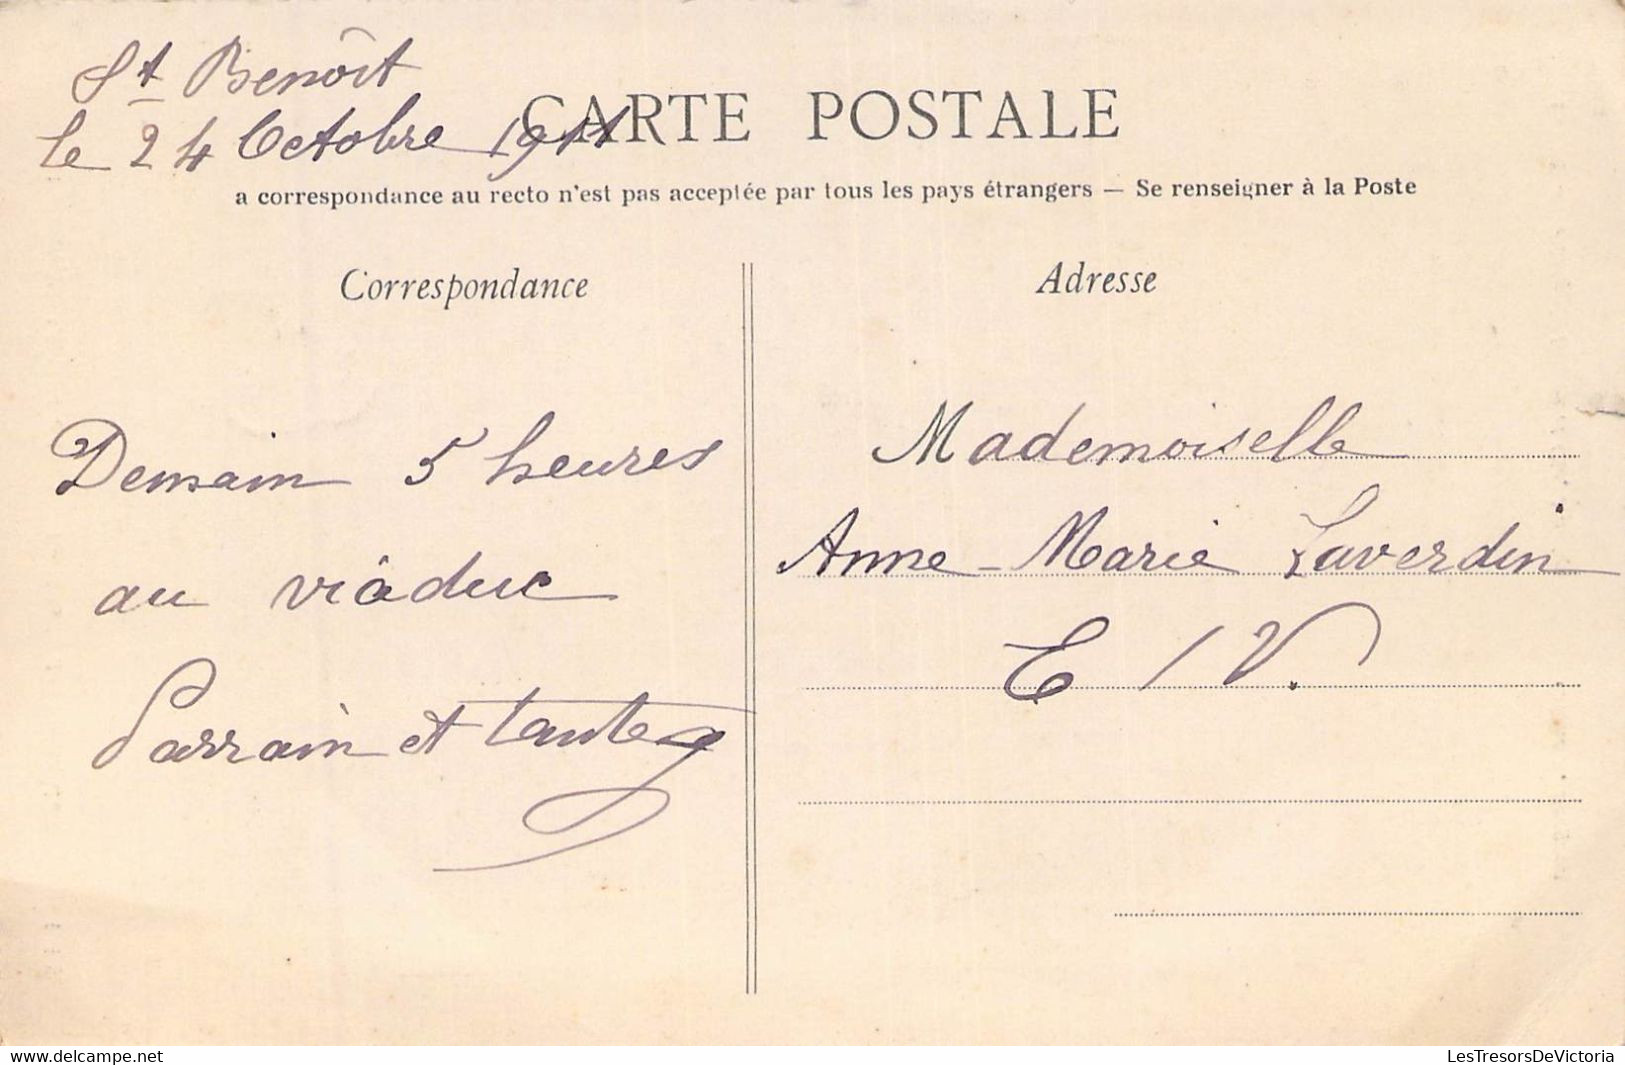 St Benôit
le 24 Octobre 1911
CARTE POSTALE
a correspondance au recto n'est pas acceptée par tous les pays étrangers — Se renseigner à la Poste
Correspondance
Demain 5 heures
au viaduc
Parrain et tante
Adresse
Mademoiselle
Anne-Marie Laverdin
E / V.
-viaduc.emc2.fr
LesTresorsDeVictoria